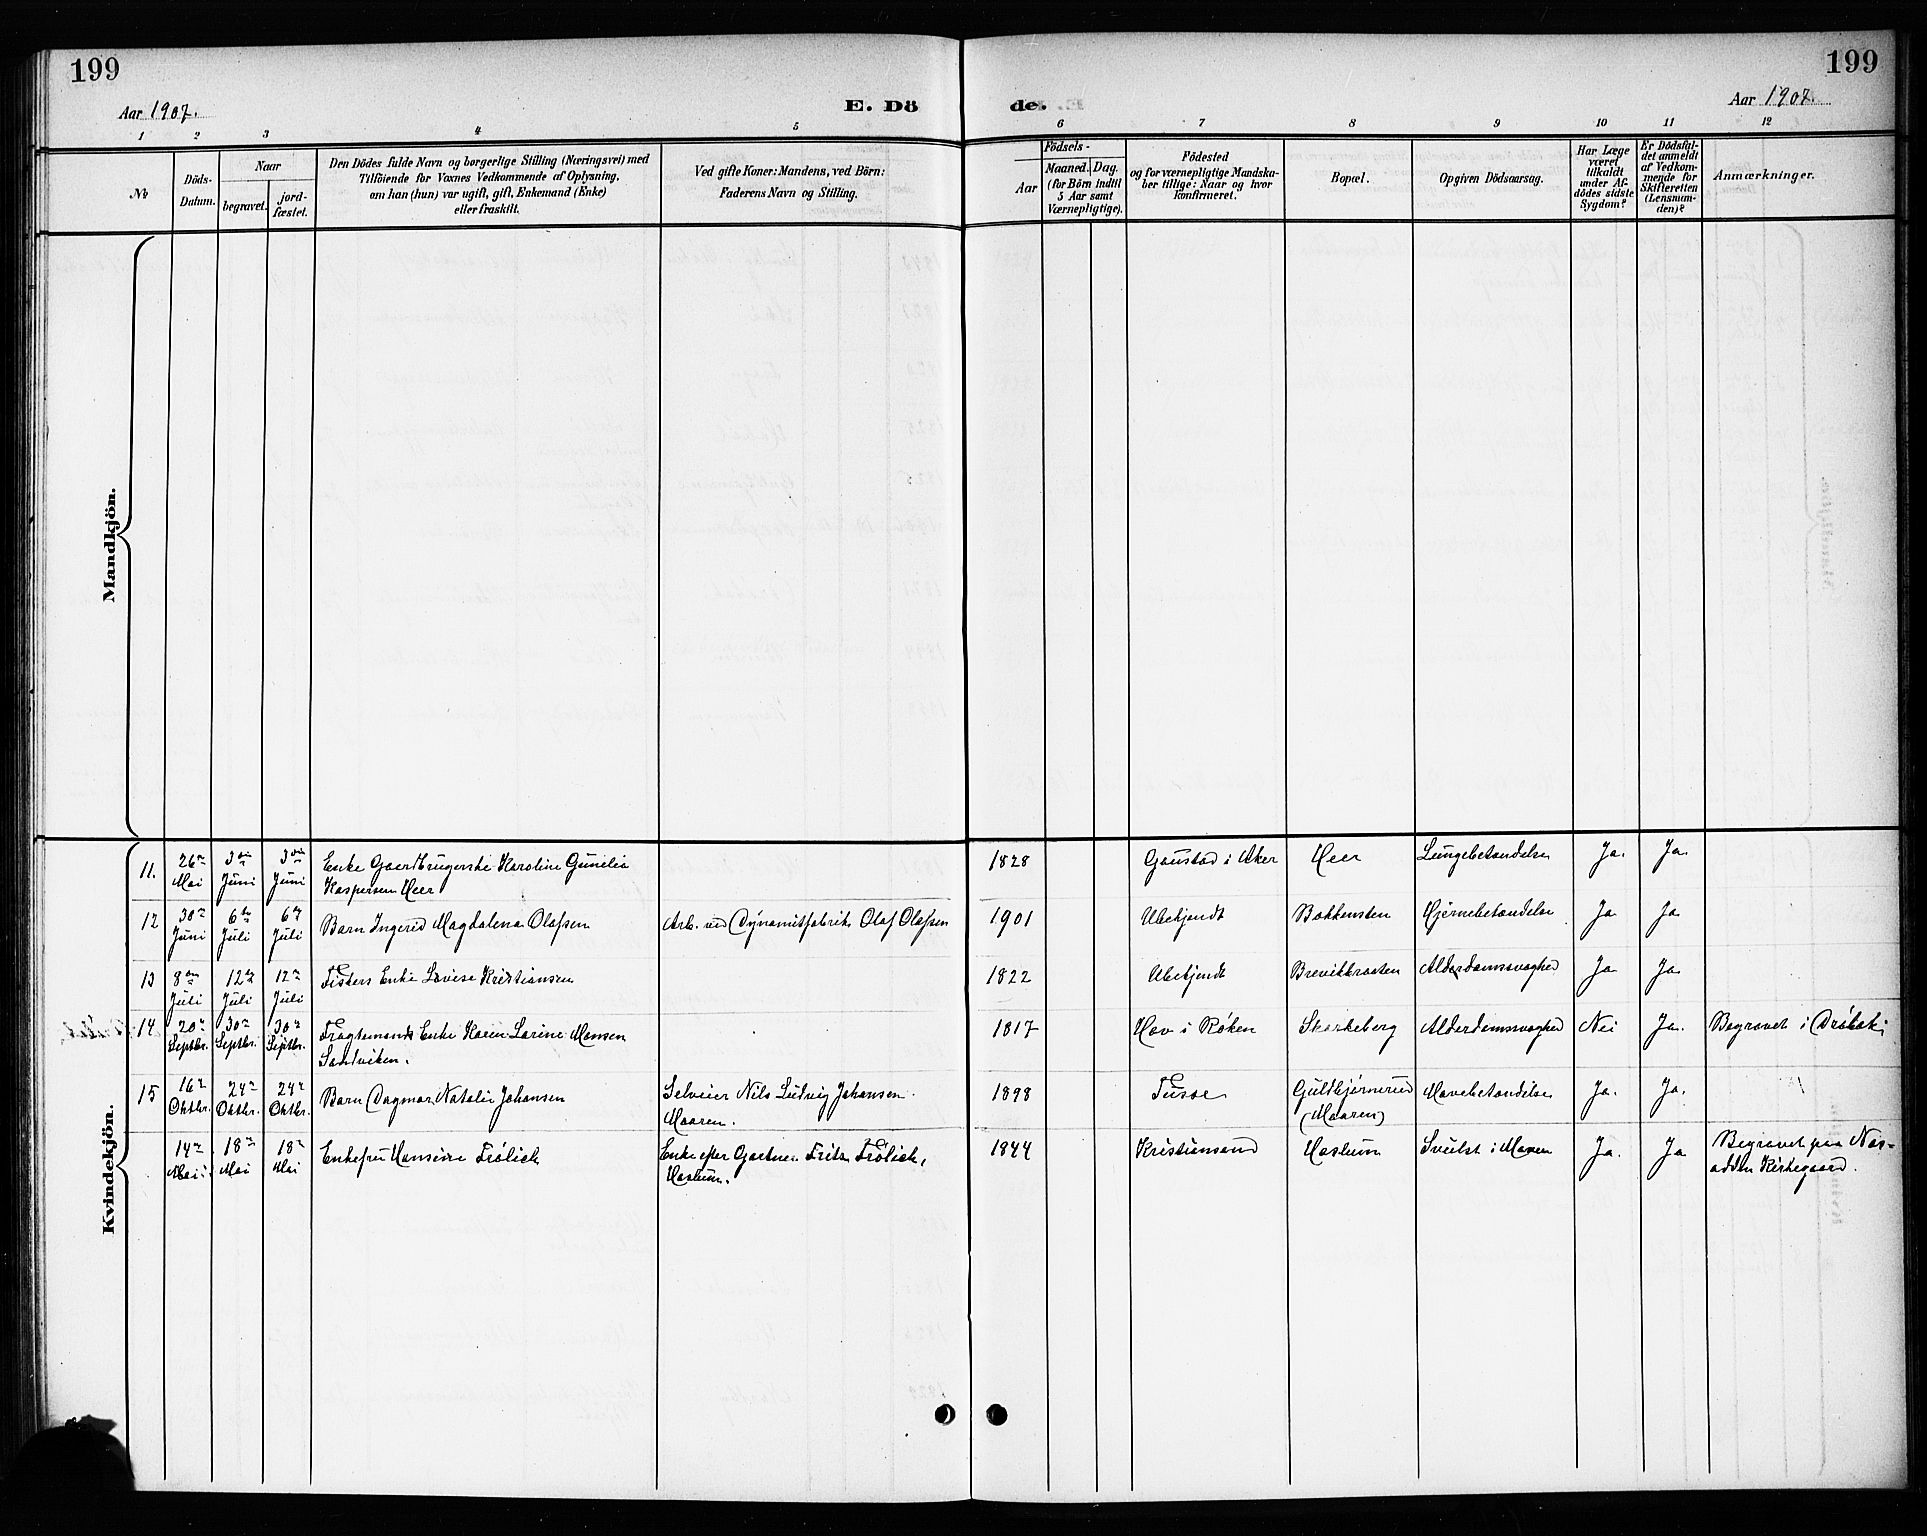 199
199
Aar 1907.
E. Dö
de.
Aar 1907.
1 2 3 4 5 6 7 8 9 10 11 12
No
Döds-
Datum.
Naar
begravet.
jord-
fæstet.
Den Dödes fulde Navn og borgerlige Stilling (Næringsvei) med
Tilföiende for Voxnes Vedkommende af Oplysning,
om han (hun) var ugift, gift, Enkemand (Enke)
eller fraskilt.
Ved gifte Koner: Mandens, ved Börn:
Faderens Navn og Stilling.
Födsels-
Aar
Maaned. Dag.
(for Börn indtil
5 Aar samt
Værnepligtige).
Födested
og for værnepligtige Mandska-
ber tillige: Naar og hvor
konfirmeret.
Bopæl.
Opgiven Dödsaarsag.
Har Læge
været
tilkaldt
under Af-
dödes sidste
Sygdom?
Er Dödsfal-
det anmeldt
af Vedkom-
mende for
Skifteretten
(Lensman-
den)?
Anmærkninger.
Mandkjön.
Kvindekjön.
11. 26 Mai 3 Juni 3 Juni Enke Gaardbrugerske Karoline Gunelia
Kaspersen Heer 1828 Gaustad i Aker Heer Lungebetændelse Ja. Ja.
12 30 Juni 6 Juli 6 Juli Barn Ingerid Magdalena Olafsen Arb. ved Dynamitfabrik Olaf Olafsen 1901 Ubekjendt Bakkensten Hjernebetændelse Ja Ja
13 8 Juli 12 Juli 12 Juli Fiskers Enke Lovise Kristiansen 1822 Ubekjendt Brevikbraaten Alderdomssvaghed Ja Ja
14 20 Septbr. 30 Septbr. 30 Septbr. Fragtemands Enke Karen Larine Hansen
Sandviken. 1817 Hov i Røken Skorkeberg Alderdomssvaghed Nei Ja. Begravet i Drøbak
15 16 Oktbr. 24 Oktbr. 24 Oktbr. Barn Dagmar Natalie Johansen Selveier Nils Ludvig Johansen
Maaren. 1898 Tusse Gulbjørnerud
(Maaren) Mavebetændelse Ja. Ja.
14 Mai 18 Mai 18 Mai Enkefru Hansine Frölich Enke efter Gartner Fritz Frölich,
Haslum. 1844 Kristiansand Haslum Svulst i Maven Ja. Ja Begravet paa Næs-
odden Kirkegaard.